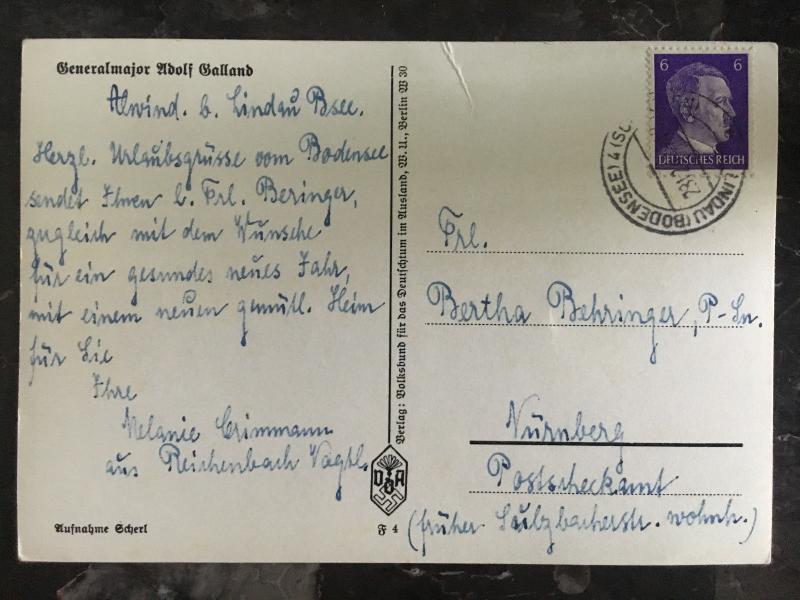 Generalmajor Adolf Galland
Alwind. b. Lindau Bsee.
Herzl. Urlaubsgrüsse vom Bodensee
sendet Ihnen l. Frl. Beringer,
zugleich mit dem Wunsche
für ein gesundes neues Jahr,
mit einem neuen gemütl. Heim
für Sie
Ihre
Melanie Crimmann
aus Reichenbach Vogtl.
Aufnahme Scherl
F 4
Verlag: Volksbund für das Deutschtum im Ausland, W. U., Berlin W 30
VDA
6 6
DEUTSCHES REICH
LINDAU (BODENSEE) 4 (SC
Frl.
Bertha Behringer, P-Sn.
Nürnberg
Postscheckamt
(früher Sulzbacherstr. wohnh.)